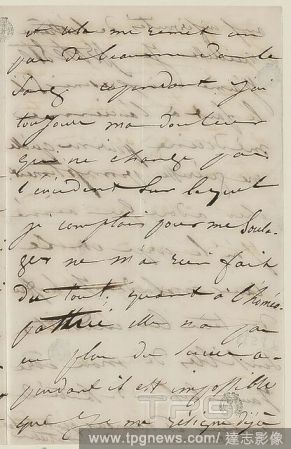 et cela me remet un
peu de beaume dans le
sang cependant j'ai
toujours ma douleur
qui ne change pas
l'incident sur lequel
je comptais pour me soula-
ger ne m'a rien fait
du tout, quant à l'homeo-
pathie elle n'a pas
eu plus de succes
pendant il est impossible
que je me résigne déjà
TPG
www.tpgnews.com / 達志影像